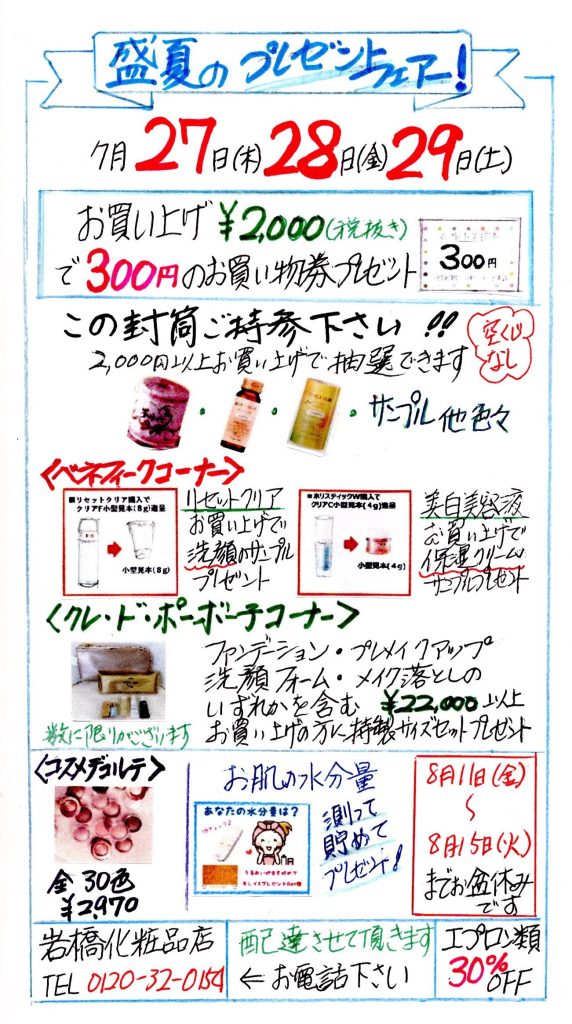 盛夏のプレゼントフェアー!
7月27日(木)28日(金)29日(土)
お買い上げ ¥2,000(税抜き)
で300円のお買い物券プレゼント
300円
この封筒ご持参下さい!!
2,000円以上お買い上げで抽選できます
空くじ
なし
サンプル他色々
<ベネフィークコーナー>
■リセットクリア購入で
クリアF小型見本(8g)進呈
小型見本(8g)
リセットクリア
お買い上げで
洗顔のサンプル
プレゼント
■ホリスティックW購入で
クリアC小型見本(4g)進呈
小型見本(4g)
美白美容液
お買い上げで
保湿クリームの
サンプルプレゼント
<クレ・ド・ポーボーテコーナー>
数に限りがございます
ファンデーション・プレメイクアップ
洗顔フォーム・メイク落としの
いずれかを含む ¥22,000以上
お買い上げの方に特製サイズセットプレゼント
<コスメデコルテ>
全30色
¥2,970
お肌の水分量
あなたの水分量は?
測って
貯めて
プレゼント!
8月11日(金)
~
8月15日(火)
までお盆休み
です
岩橋化粧品店
TEL 0120-32-0154
配達させて頂きます
←お電話下さい
エプロン類
30%OFF